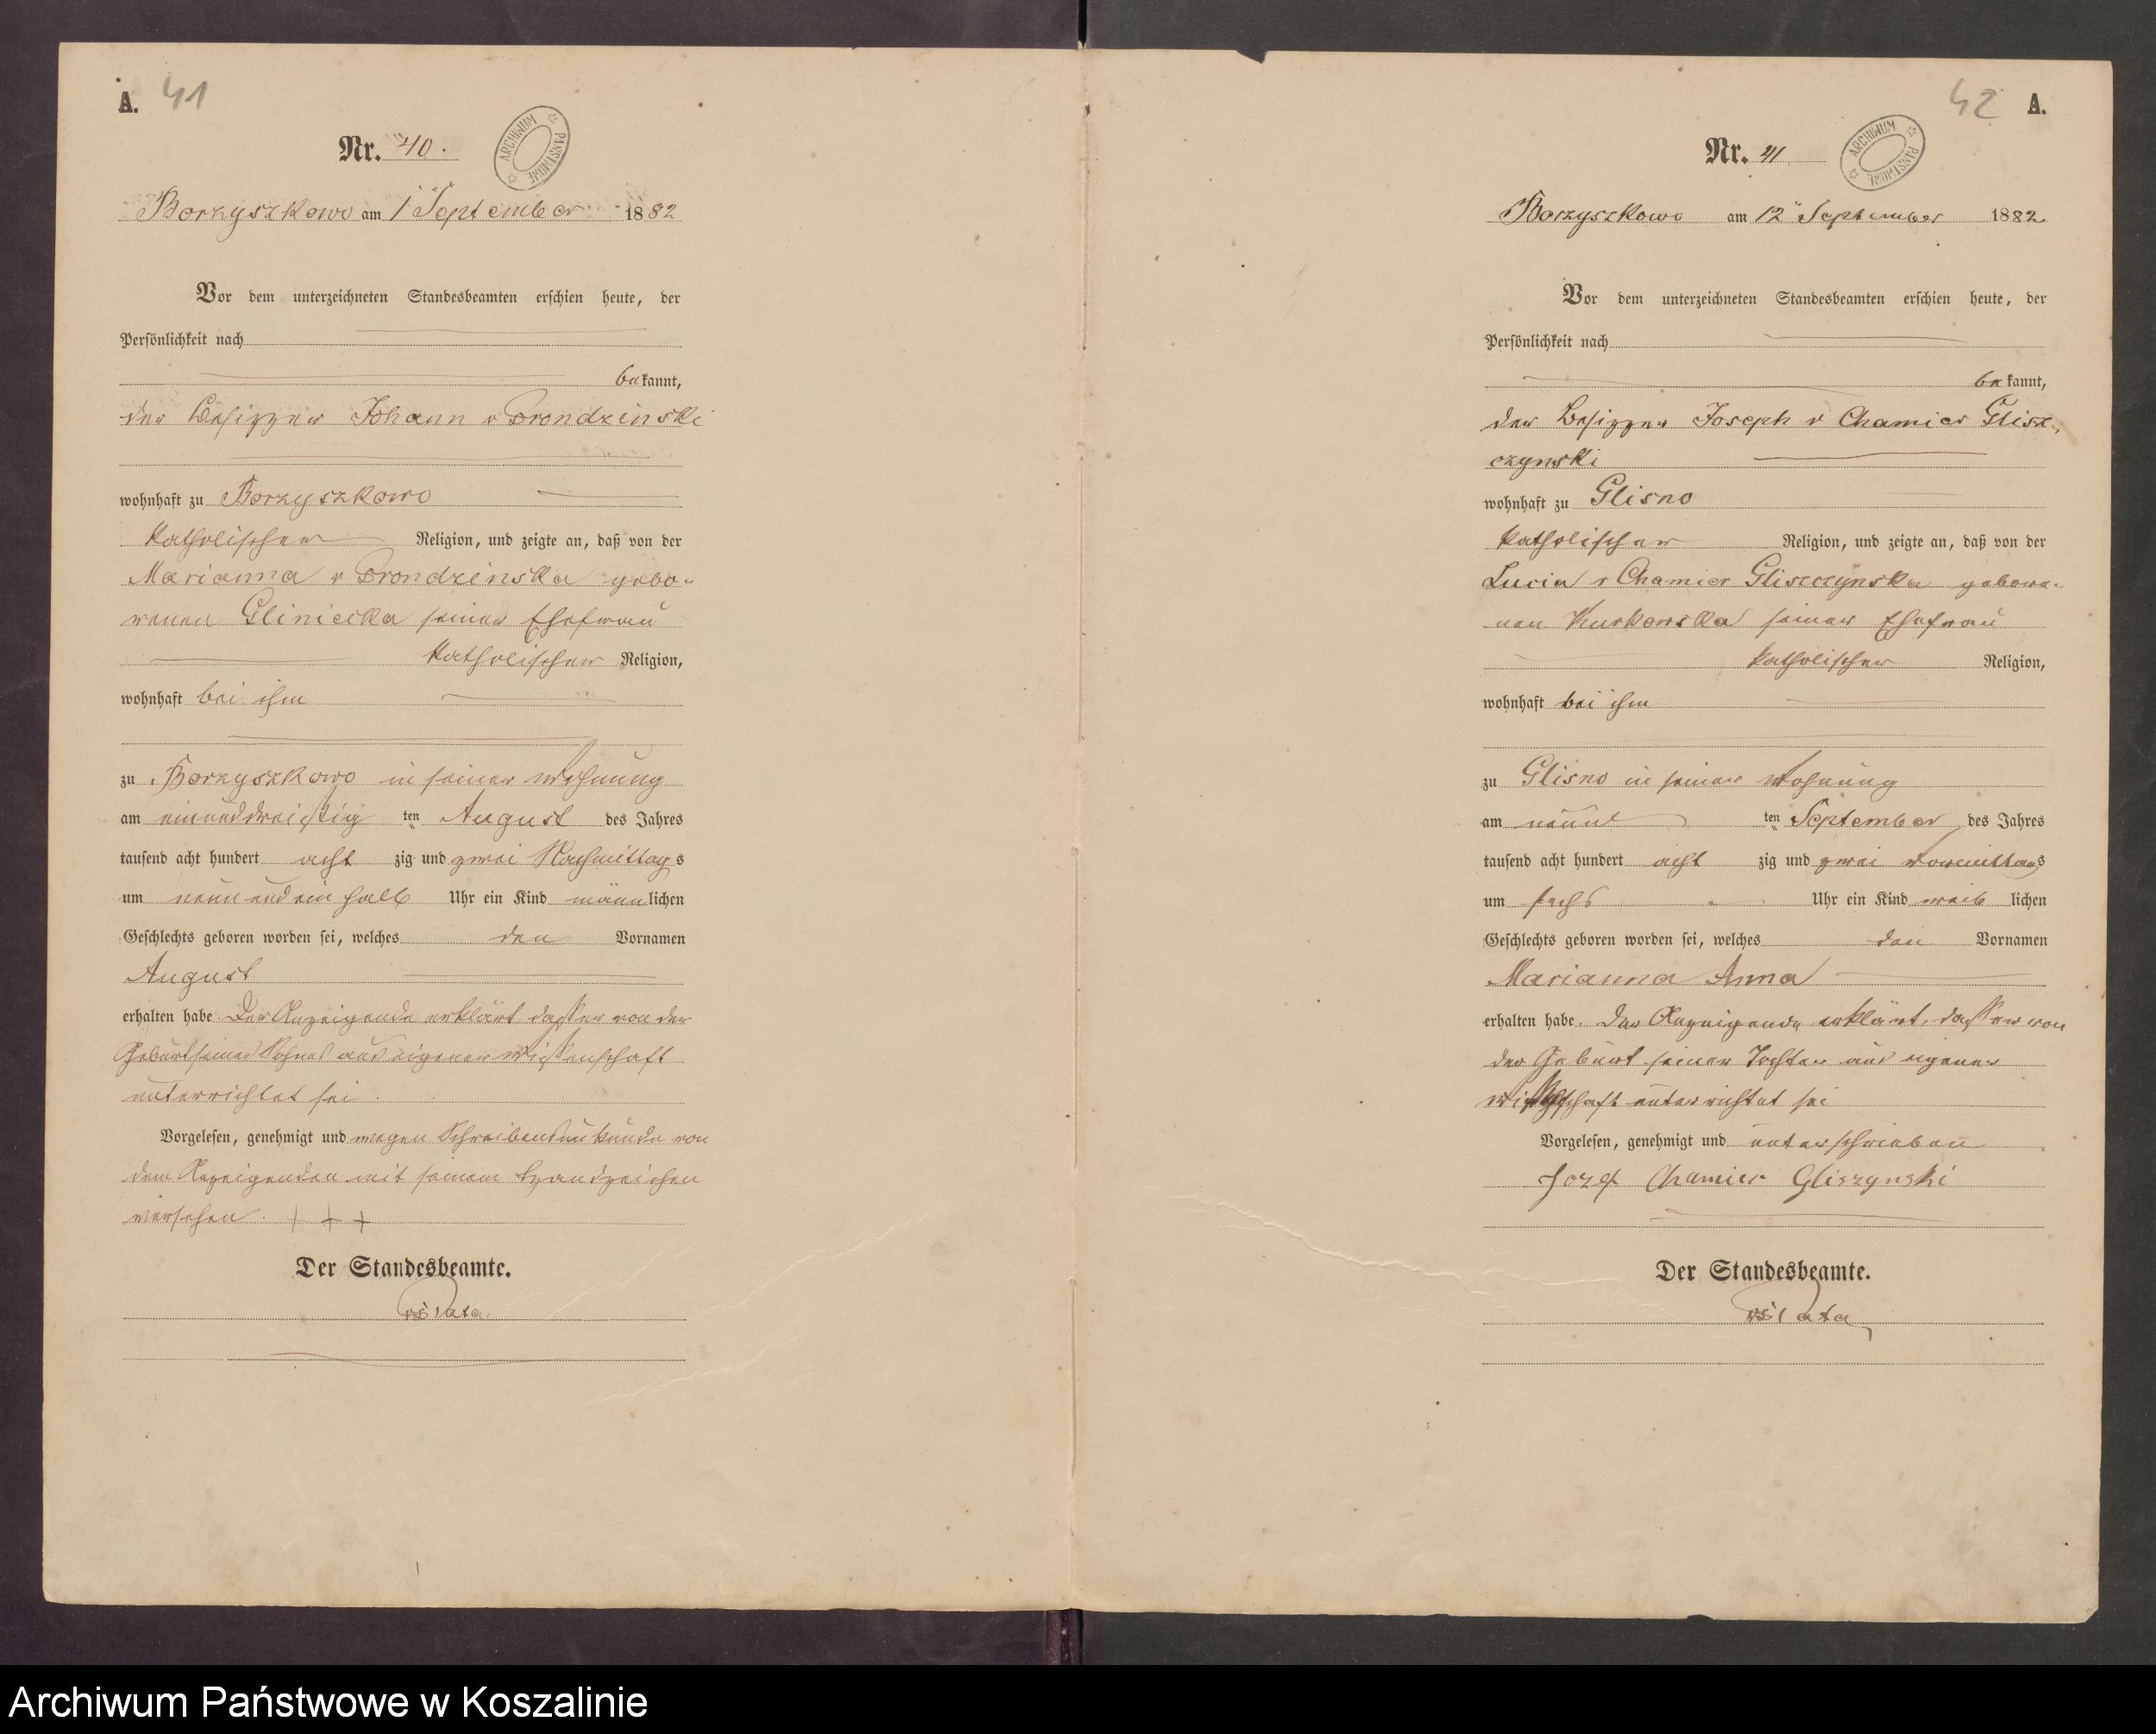 A. 41
Nr. 40.
ARCHIWUM PAŃSTWOWE
Borzyszkowo am 1 September 1882
Vor dem unterzeichneten Standesbeamten erschien heute, der
Persönlichkeit nach
bekannt,
der Besitzer Johann v Brondzinski
wohnhaft zu Borzyszkowo
katholischer Religion, und zeigte an, daß von der
Marianna v Brondzinska gebo-
renen Gliniecka seiner Ehefrau
katholischer Religion,
wohnhaft bei ihm
zu Borzyszkowo in seiner Wohnung
am einunddreißig ten August des Jahres
tausend acht hundert acht zig und zwei Nachmittags
um neun und ein halb Uhr ein Kind männlichen
Geschlechts geboren worden sei, welches den Vornamen
August
erhalten habe. Der Anzeigende erklärt, daß er von der
Geburt seines Sohnes aus eigener Wissenschaft
unterrichtet sei.
Vorgelesen, genehmigt und wegen Schreibensunkunde von
dem Anzeigenden mit seinem Handzeichen
versehen. + + +
Der Standesbeamte.
42 A.
Nr. 41
ARCHIWUM PAŃSTWOWE
Borzyszkowo am 12 September 1882
Vor dem unterzeichneten Standesbeamten erschien heute, der
Persönlichkeit nach
bekannt,
der Besitzer Joseph v Chamier Glisz-
czynski
wohnhaft zu Glisno
katholischer Religion, und zeigte an, daß von der
Lucia v Chamier Gliszczynska gebore-
nen Kurkowska seiner Ehefrau
katholischer Religion,
wohnhaft bei ihm
zu Glisno in seiner Wohnung
am neunt ten September des Jahres
tausend acht hundert acht zig und zwei Vormittags
um sechs Uhr ein Kind weib lichen
Geschlechts geboren worden sei, welches den Vornamen
Marianna Anna
erhalten habe. Der Anzeigende erklärt, daß er von
der Geburt seiner Tochter aus eigener
Wissenschaft unterrichtet sei
Vorgelesen, genehmigt und unterschrieben
Jozef Chamier Gliszynski
Der Standesbeamte.
Archiwum Państwowe w Koszalinie